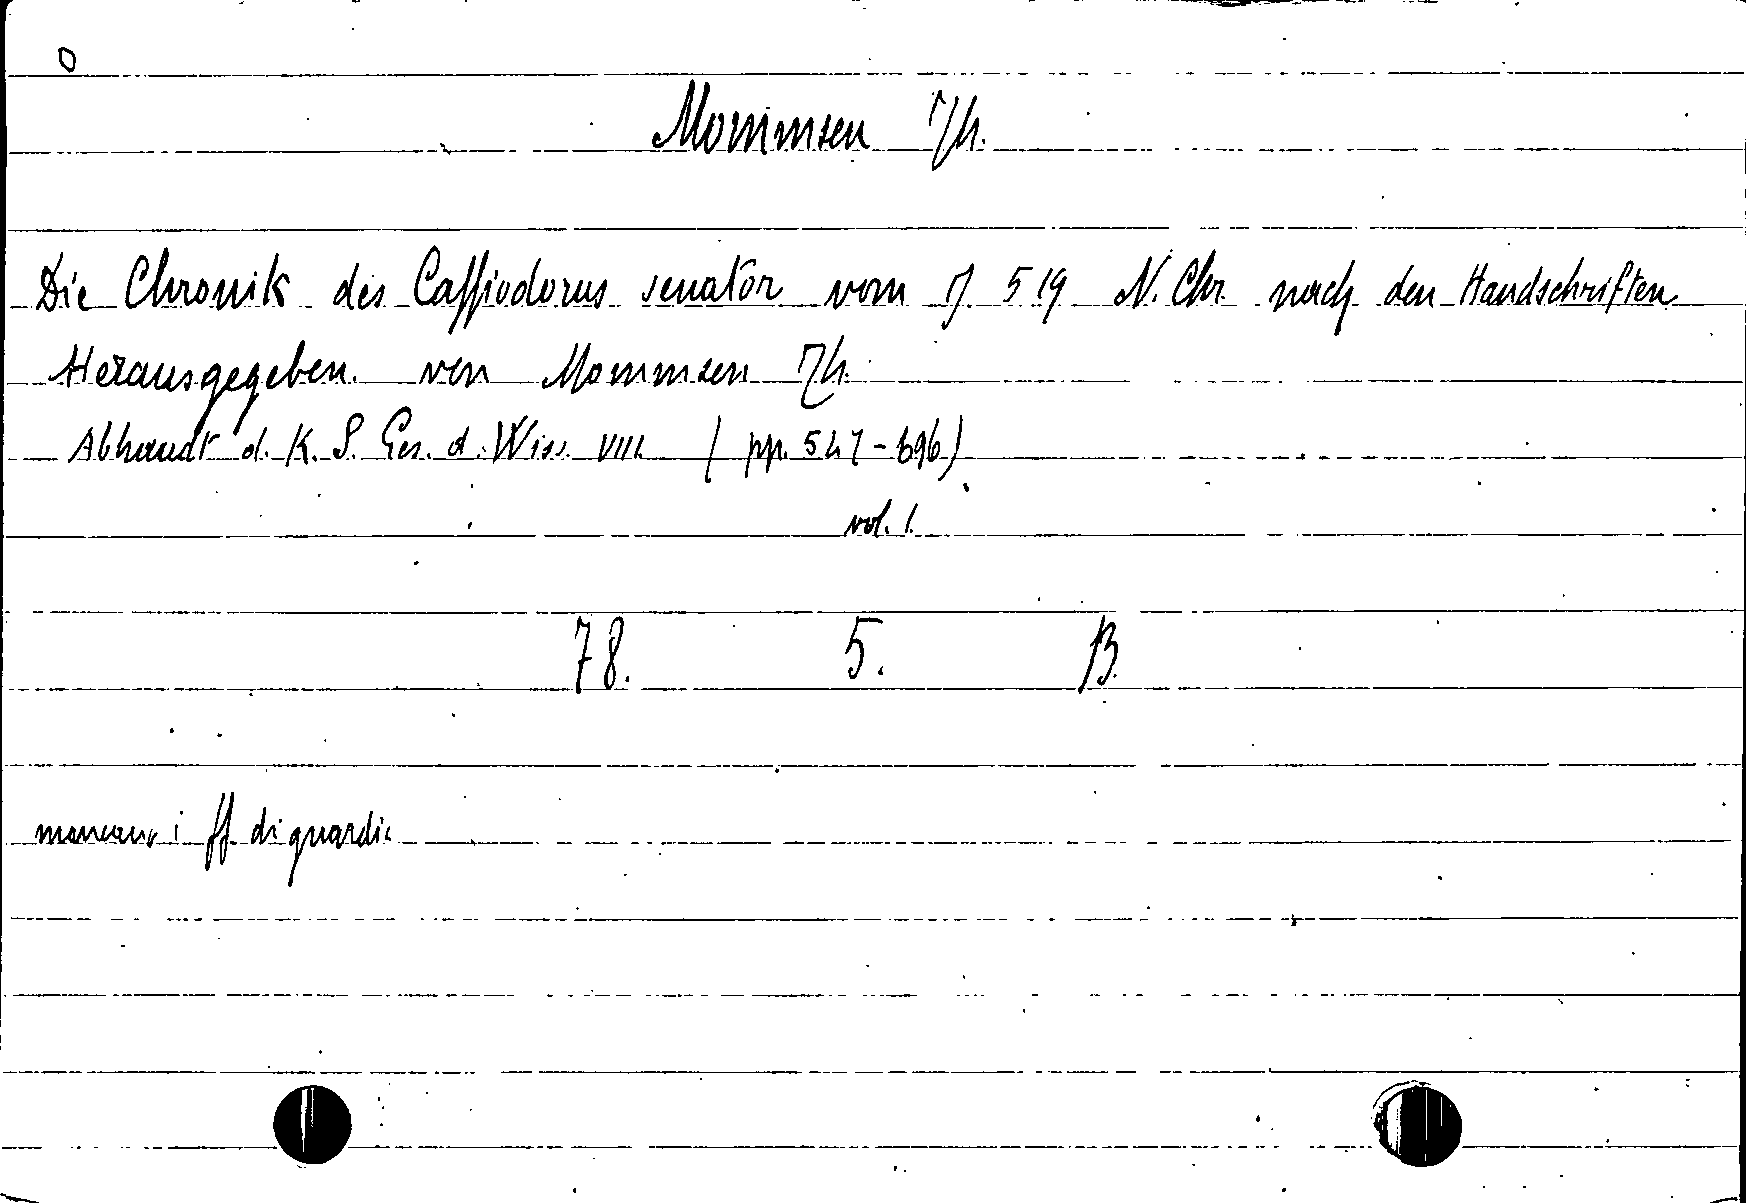 O
Mommsen Th.
Die Chronik des Cassiodorus senator vom J. 519 N. Chr. nach den Handschriften
Herausgegeben von Mommsen Th.
Abhandl d. K. S. Ges. d. Wiss. VIII. (pp. 547-696)
vol. 1.
78. 5. B.
mancano i ff. di guardia